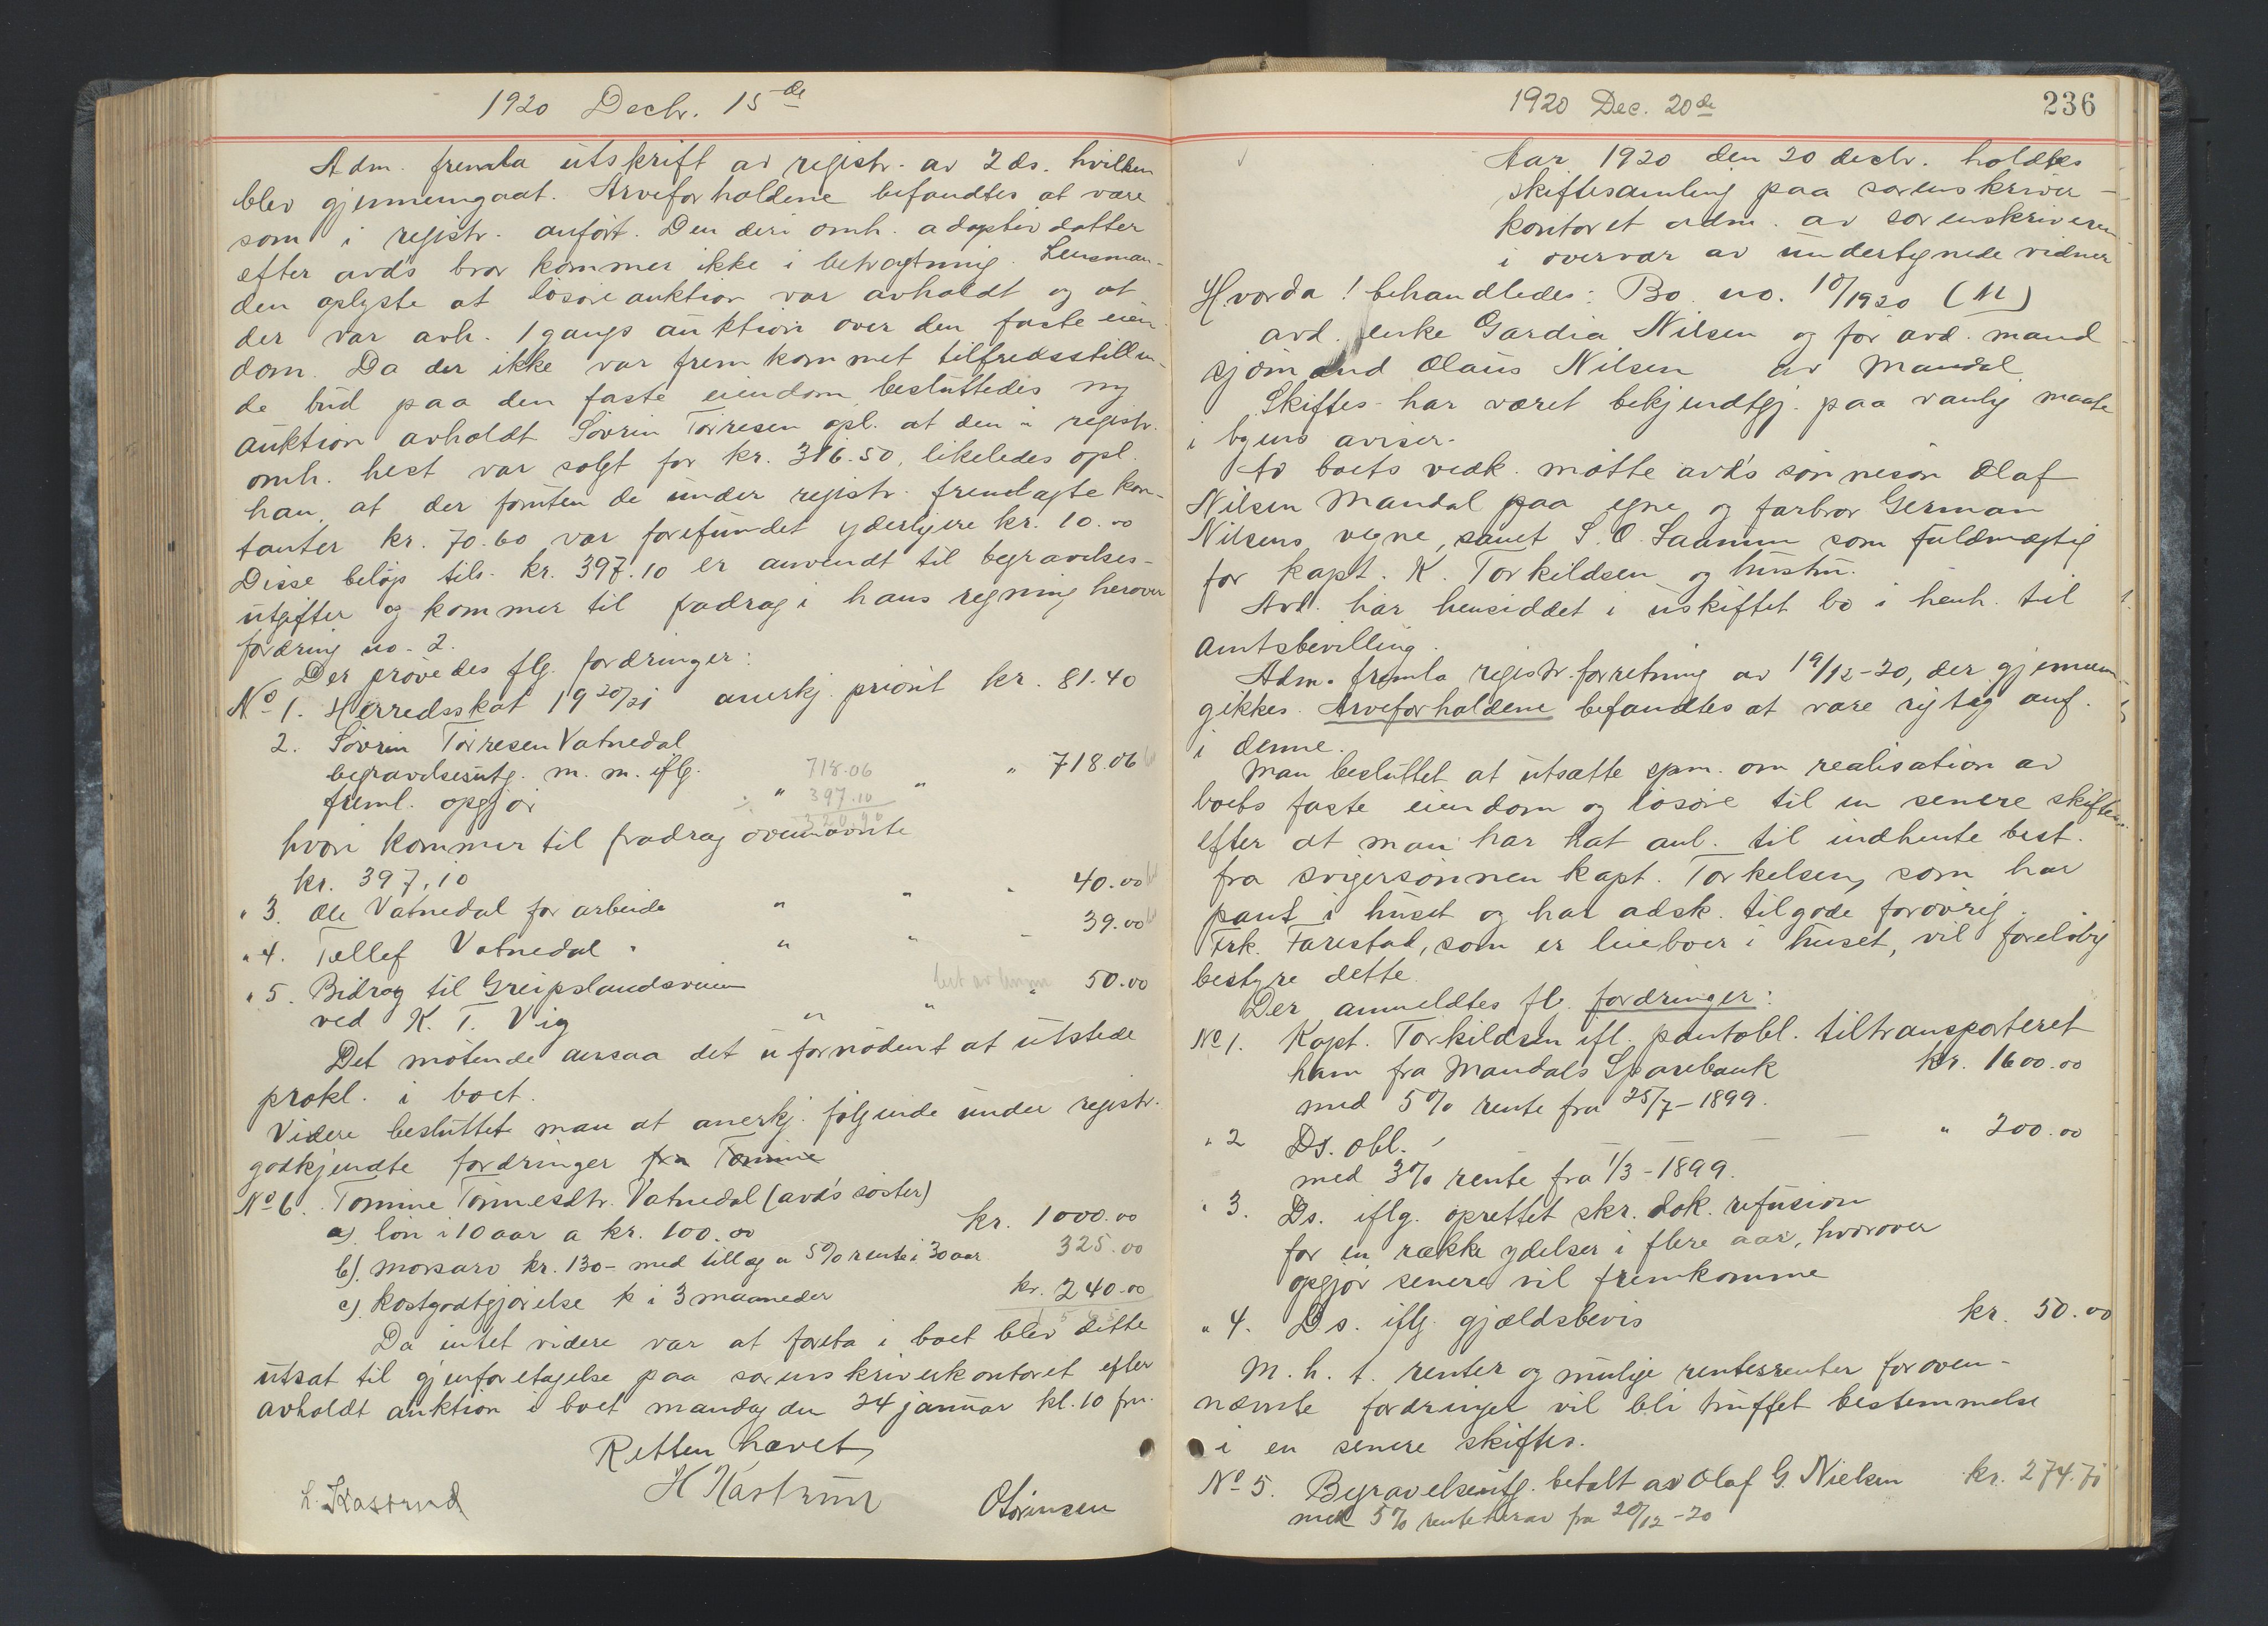 1920 Decbr. 15de
Adm. fremla utskrift av registr. av 2 ds. hvilken
blev gjennemgaat. Arveforholdene befandtes at være
som i registr. anført. Den deri omh. adoptiv datter
efter avd's bror kommer ikke i betragtning. Lensman-
den oplyste at løsøreauktion var avholdt og at
der var avh. 1 gangs auktion over den faste eien-
dom. Da der ikke var fremkommet tilfredsstillen-
de bud paa den faste eiendom besluttedes ny
auktion avholdt Sövrin Törresen opl. at den i registr.
omh. hest var solgt for kr. 316.50, likeledes opl.
han at der foruten de under registr. fremlagte kon-
tanter kr. 70.60 var forefundet yderligere kr. 10.00
Disse beløp tils. kr. 397.10 er anvendt til begravelses-
utgifter og kommer til fradrag i hans regning herover
fordring no. 2.
Der prövedes flg. fordringer:
No 1. Herredsskat 1920/21 anerkj. priorit kr. 81.40
2. Sövrin Törresen Vatnedal
begravelsesutg. m. m. iflg. 718.06
freml. opgjör " 397.10 " " 718.06
320.90
hvori kommer til fradrag ovennævnte
kr. 397.10
" 3. Ole Vatnedal for arbeide " " " 40.00
" 4. Tellef Vatnedal " " " - 39.00
" 5. Bidrag til Greipslandsveien
ved K. T. Vig " " " 50.00
Det mötende ansaa det ufornödent at utstede
prokl. i boet.
Videre besluttet man at anerkj. følgende under registr.
godkjendte fordringer fra Tomine
No 6. Tomine Tönnesdtr. Vatnedal (avd's søster)
a) lön i 10 aar a kr. 100.00 kr. 1000.00
b). morsarv kr. 130- med tillæg a 5% rente i 30 aar 325.00
c) kostgodtgjörelse i 3 maaneder kr. 240.00
Da intet videre var at foreta i boet blev dette
utsat til gjenforetagelse paa sorenskriverkontoret efter
avholdt auktion i boet mandag den 24 januar kl. 10 fm.
Retten hævet
1920 Dec. 20de 236
Aar 1920 den 20 decbr. holdtes
skiftesamling paa sorenskriver-
kontoret adm. av sorenskriveren
i overvær av undertegnede vidner
Hvorda! behandledes: Bo no. 10/1920 (M)
avd. enke Gardia Nilsen og før avd. mand
sjömand Olaus Nilsen av Mandal
Skiftes. har været bekjendtgj. paa vanlig maate
i byens aviser.
Av boets vedk. mötte avd's sönnesön Olaf
Nilsen Mandal paa egne og farbror German
Nilsens vegne, samt S. O. Saanum som fuldmægtig
for kapt. K. Torkildsen og hustru.
Avd. har hensiddet i uskiftet bo i henh. til
amtsbevilling.
Adm. fremla registr. forretning av 19/12-20, der gjennem-
gikkes. Arveforholdene befandtes at være rigtig anf.
i denne.
Man besluttet at utsætte spm. om realisation av
boets faste eiendom og løsøre til en senere skiftes.
efter at man har hat anl. til indhente best.
fra svigersönnen kapt. Torkelsen, som har
pant i huset og har adsk. tilgode forøvrig.
Frk. Farestad, som er leieboer i huset, vil foreløbig
bestyre dette.
Der anmeldtes fl. fordringer:
No 1. Kapt. Torkildsen ifl. pantobl. tiltransporteret
ham fra Mandals Sparebank kr. 1600.00
med 5% rente fra 25/7-1899.
" 2 Ds. obl. " 200.00
med 3% rente fra 1/3-1899.
" 3. Ds. iflg. oprettet skr. dok. refusion
for en række ydelser i flere aar, hvorover
opgjör senere vil fremkomme
" 4. Ds. iflg. gjældsbevis kr. 50.00
M. h. t. renter og mulige rentesrenter for oven-
nævnte fordringer vil bli truffet bestemmelse
i en senere skiftes.
No 5. Begravelsesutg. betalt av Olaf G. Nielsen kr. 274.70
med 5% rente herav fra 20/12-20